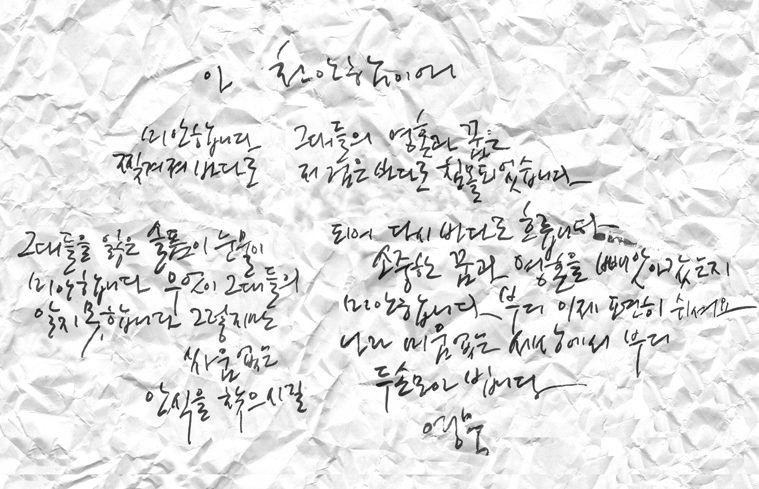 아 천안함이여
미안합니다 그대들의 영혼과 꿈은
찢겨져 바다로 저 검은 바다로 침몰되었습니다
그대들을 잃은 슬픔이 눈물이 되어 다시 바다로 흐릅니다
미안합니다 무엇이 그대들의 소중한 꿈과 영혼을 빼앗아갔는지
알지 못합니다 그렇지만 미안합니다 부디 이제 쉬세요
싸움 없는 나라 미움 없는 세상에서 부디
안식을 찾으시길 두손모아 빕니다